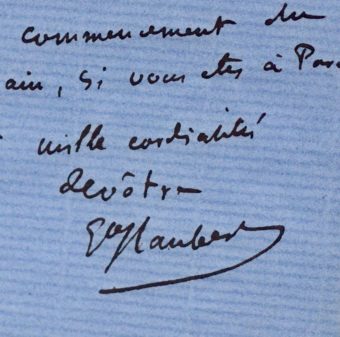 commencement du
ain, si vous etes à Par
mille cordialités
devôtre
GveFlaubert